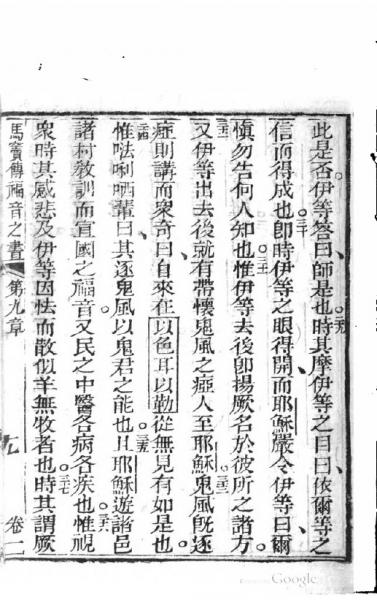 此是否伊等答曰師是也二九時其摩伊等之目曰依爾等之
信而得成也三十卽時伊等之眼得開而耶穌嚴令伊等曰爾
愼勿吿何人知也三一惟伊等去後卽揚厥名於彼所之諸方
三二又伊等出去後就有帶懷鬼風之瘂人至耶穌三三鬼風旣逐
瘂則講而衆奇曰自來在以色耳以勒從無見有如是也
三四惟𠵽唎哂輩曰其逐鬼風以鬼君之能也三五且耶穌遊諸邑
諸村敎訓而宣國之福音又民之中醫各病各疾也三六惟視
衆時其感悲及伊等因怯而散似羊無牧者也三七時其謂厥
馬竇傳福音之書 第九章 七 卷一
Google